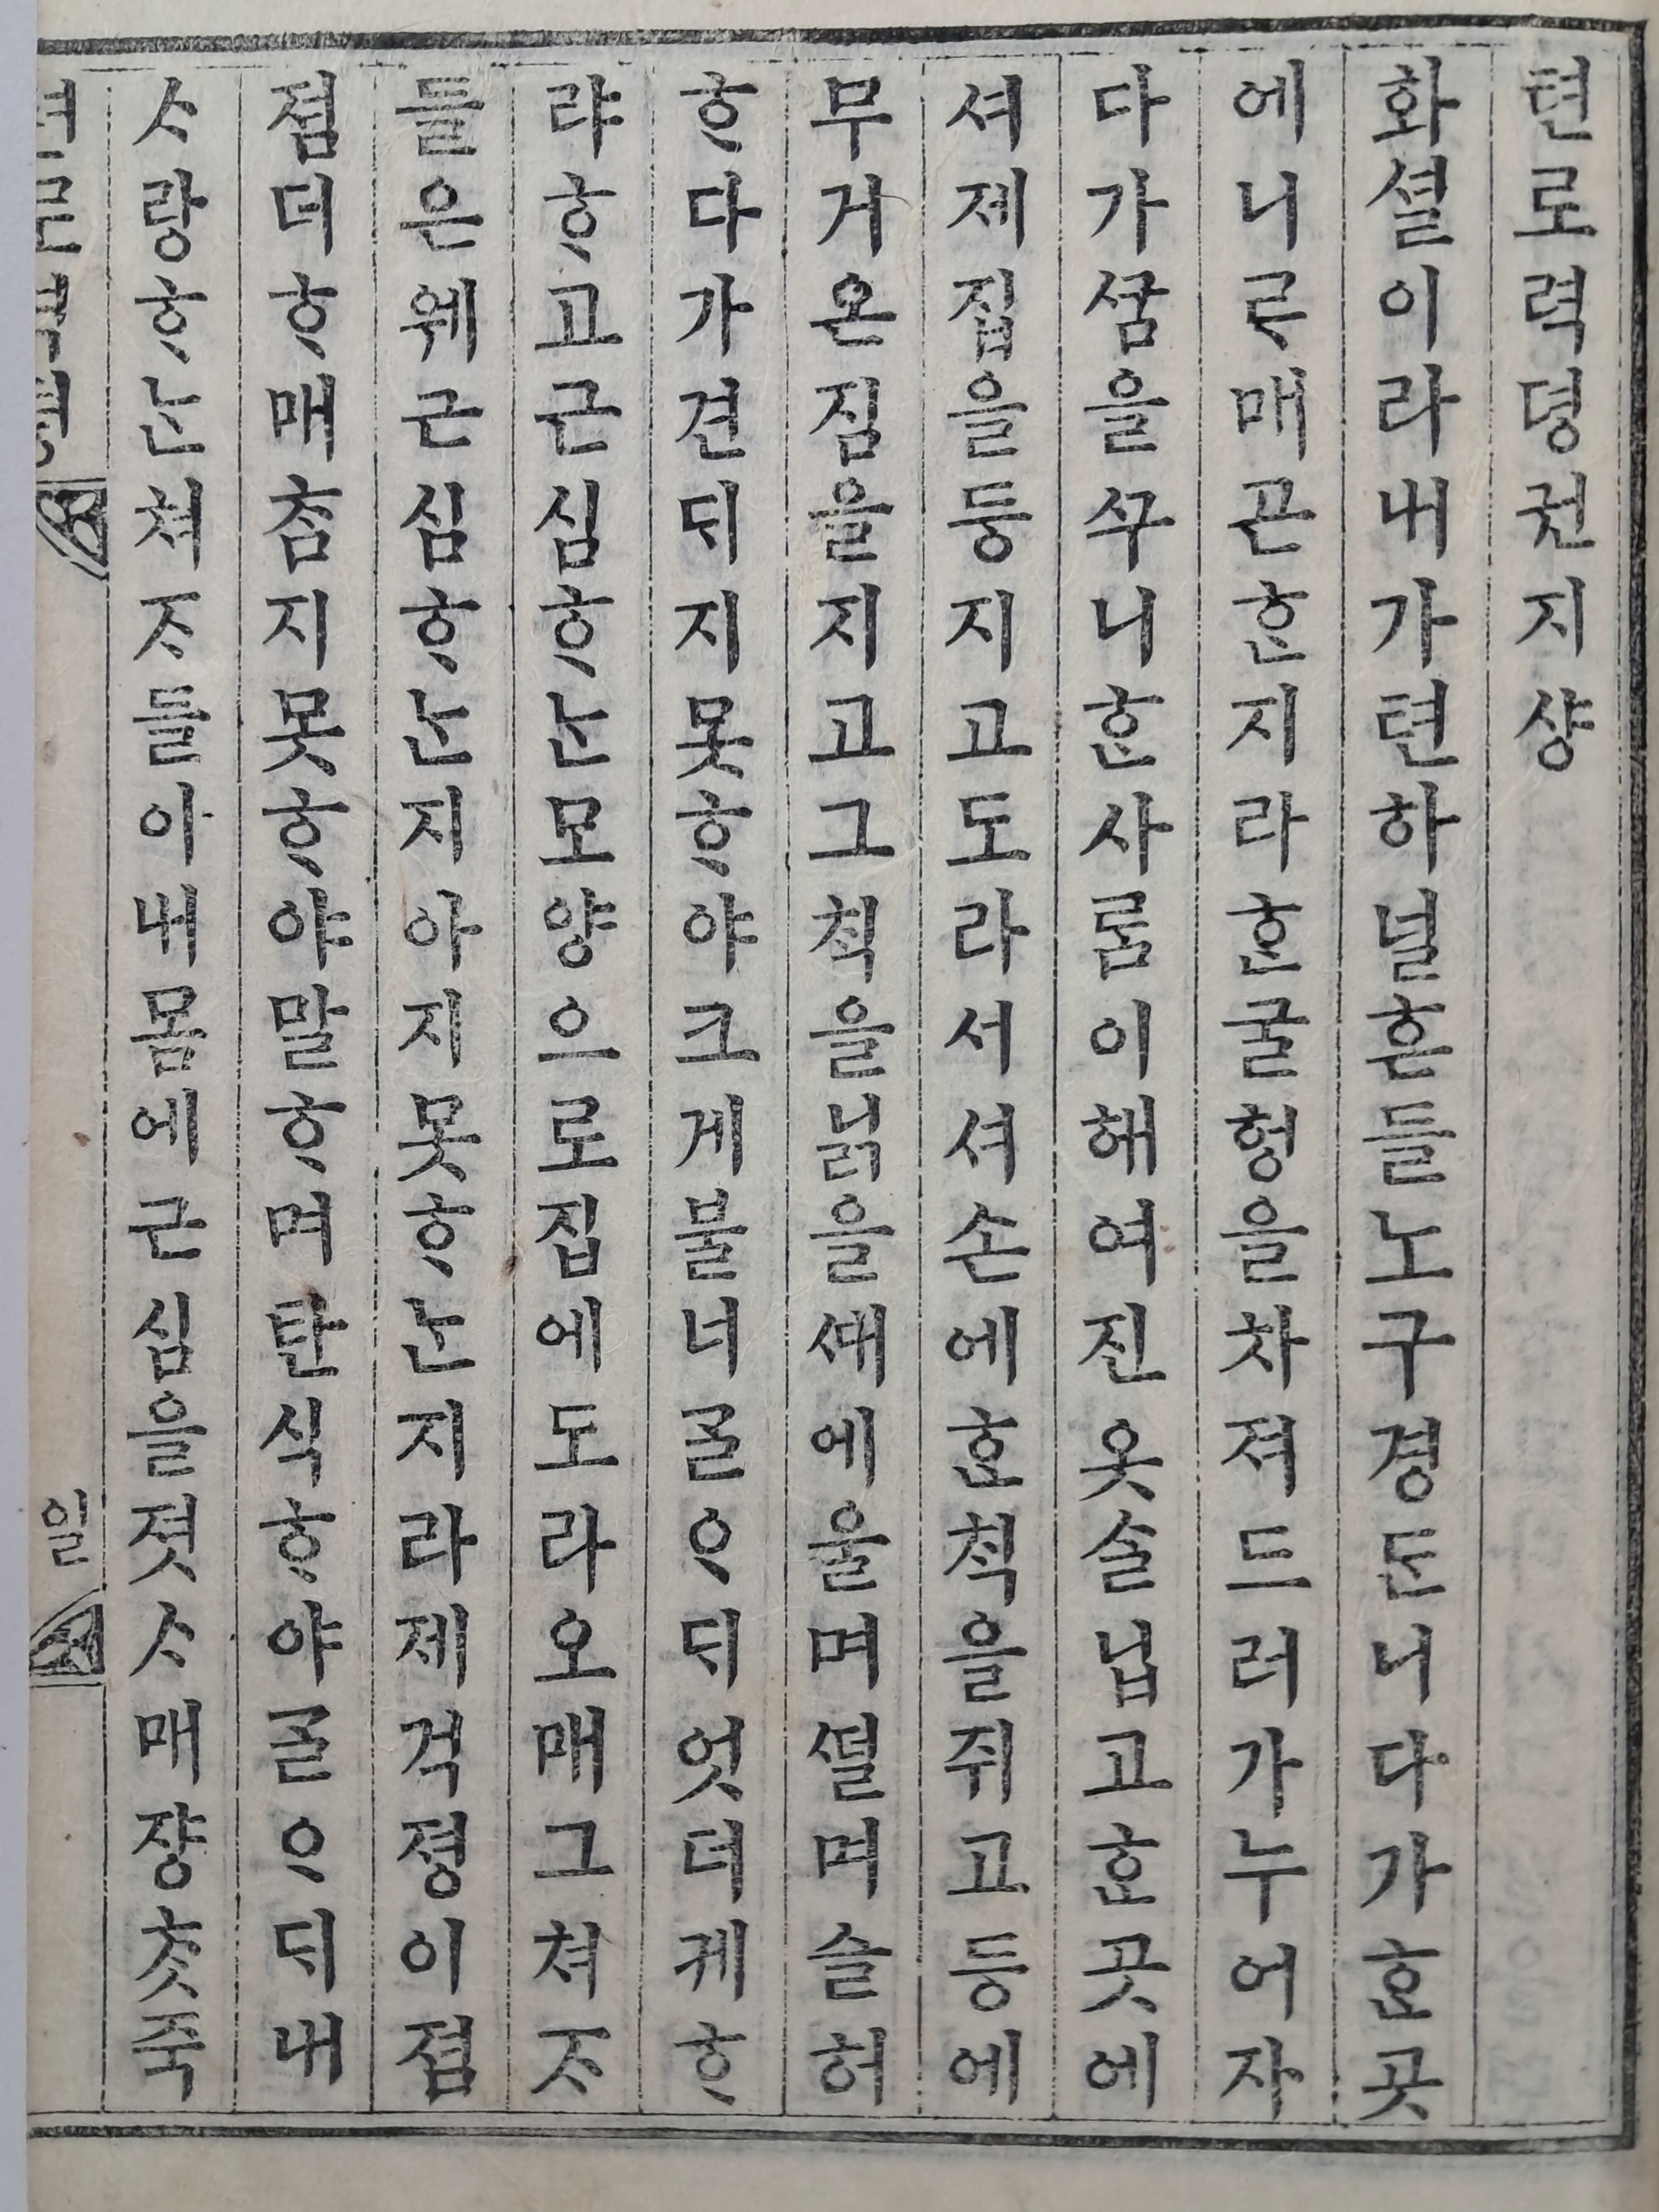 텬로력뎡권지샹
화셜이라내가텬하널흔들노구경ᄃᆞᆫ니다가ᄒᆞᆫ곳
에니ᄅᆞ매곤ᄒᆞᆫ지라ᄒᆞᆫ굴헝을차져드러가누어자
다가ᄭᅮᆷ을ᄭᅮ니ᄒᆞᆫ사ᄅᆞᆷ이해여진옷슬닙고ᄒᆞᆫ곳에
셔제집을둥지고도라서셔손에ᄒᆞᆫᄎᆡᆨ을쥐고등에
무거온짐을지고그ᄎᆡᆨ을닑을ᄯᅢ에울며ᄯᅥᆯ며슬허
ᄒᆞ다가견ᄃᆡ지못ᄒᆞ야크게불너ᄀᆞᆯᄋᆞᄃᆡ엇더케ᄒᆞ
랴ᄒᆞ고근심ᄒᆞᄂᆞᆫ모양으로집에도라오매그쳐ᄌᆞ
들은웨근심ᄒᆞᄂᆞᆫ지아지못ᄒᆞᄂᆞᆫ지라제걱졍이졈
졈더ᄒᆞ매ᄎᆞᆷ지못ᄒᆞ야말ᄒᆞ며탄식ᄒᆞ야ᄀᆞᆯᄋᆞᄃᆡ내
ᄉᆞ랑ᄒᆞᄂᆞᆫ쳐ᄌᆞ들아내몸에근심을졋ᄉᆞ매쟝ᄎᆞᆺ죽
일